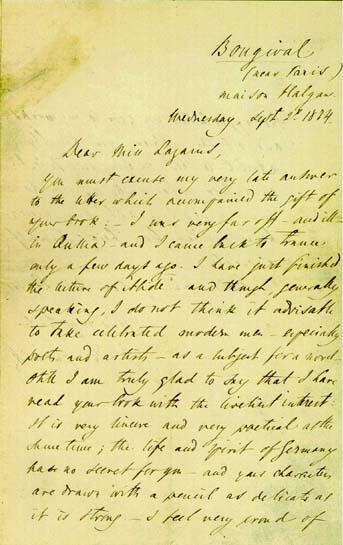 Bougival
(near Paris)
maison Halgan
Wednesday, Sept. 2d 1874.
Dear Miss Lazarus,
You must excuse my very late answer
to the letter which accompanied the gift of
your book. — I was very far off — and ill —
in Russia — and I came back to France
only a few days ago. I have just finished
the lecture of "Alide" — and though, generally
speaking, I do not think it advisable
to take celebrated modern men — especially
poets and artists — as a subject for a novel —
still I am truly glad to say that I have
read your book with the liveliest interest:
it is very sincere and very poetical at the
same time; the life and spirit of Germany
have no secret for you — and your characters
are drawn with a pencil as delicate as
it is strong. — I feel very proud of